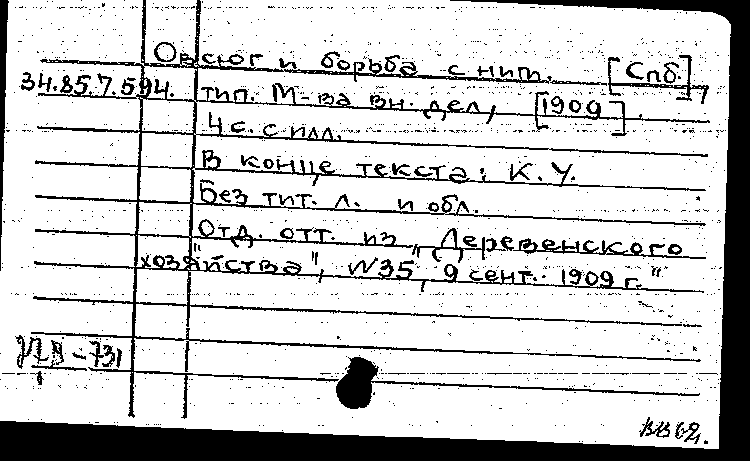 Овсюг и борьба с ним. [Спб.],
34.85.7.594. тип. М-ва вн. дел, [1909].
4 с. с илл.
В конце текста: К. У.
Без тит. л. и обл.
Отд. отт. из „Деревенского
хозяйства", №35, 9 сент. 1909 г."
-731